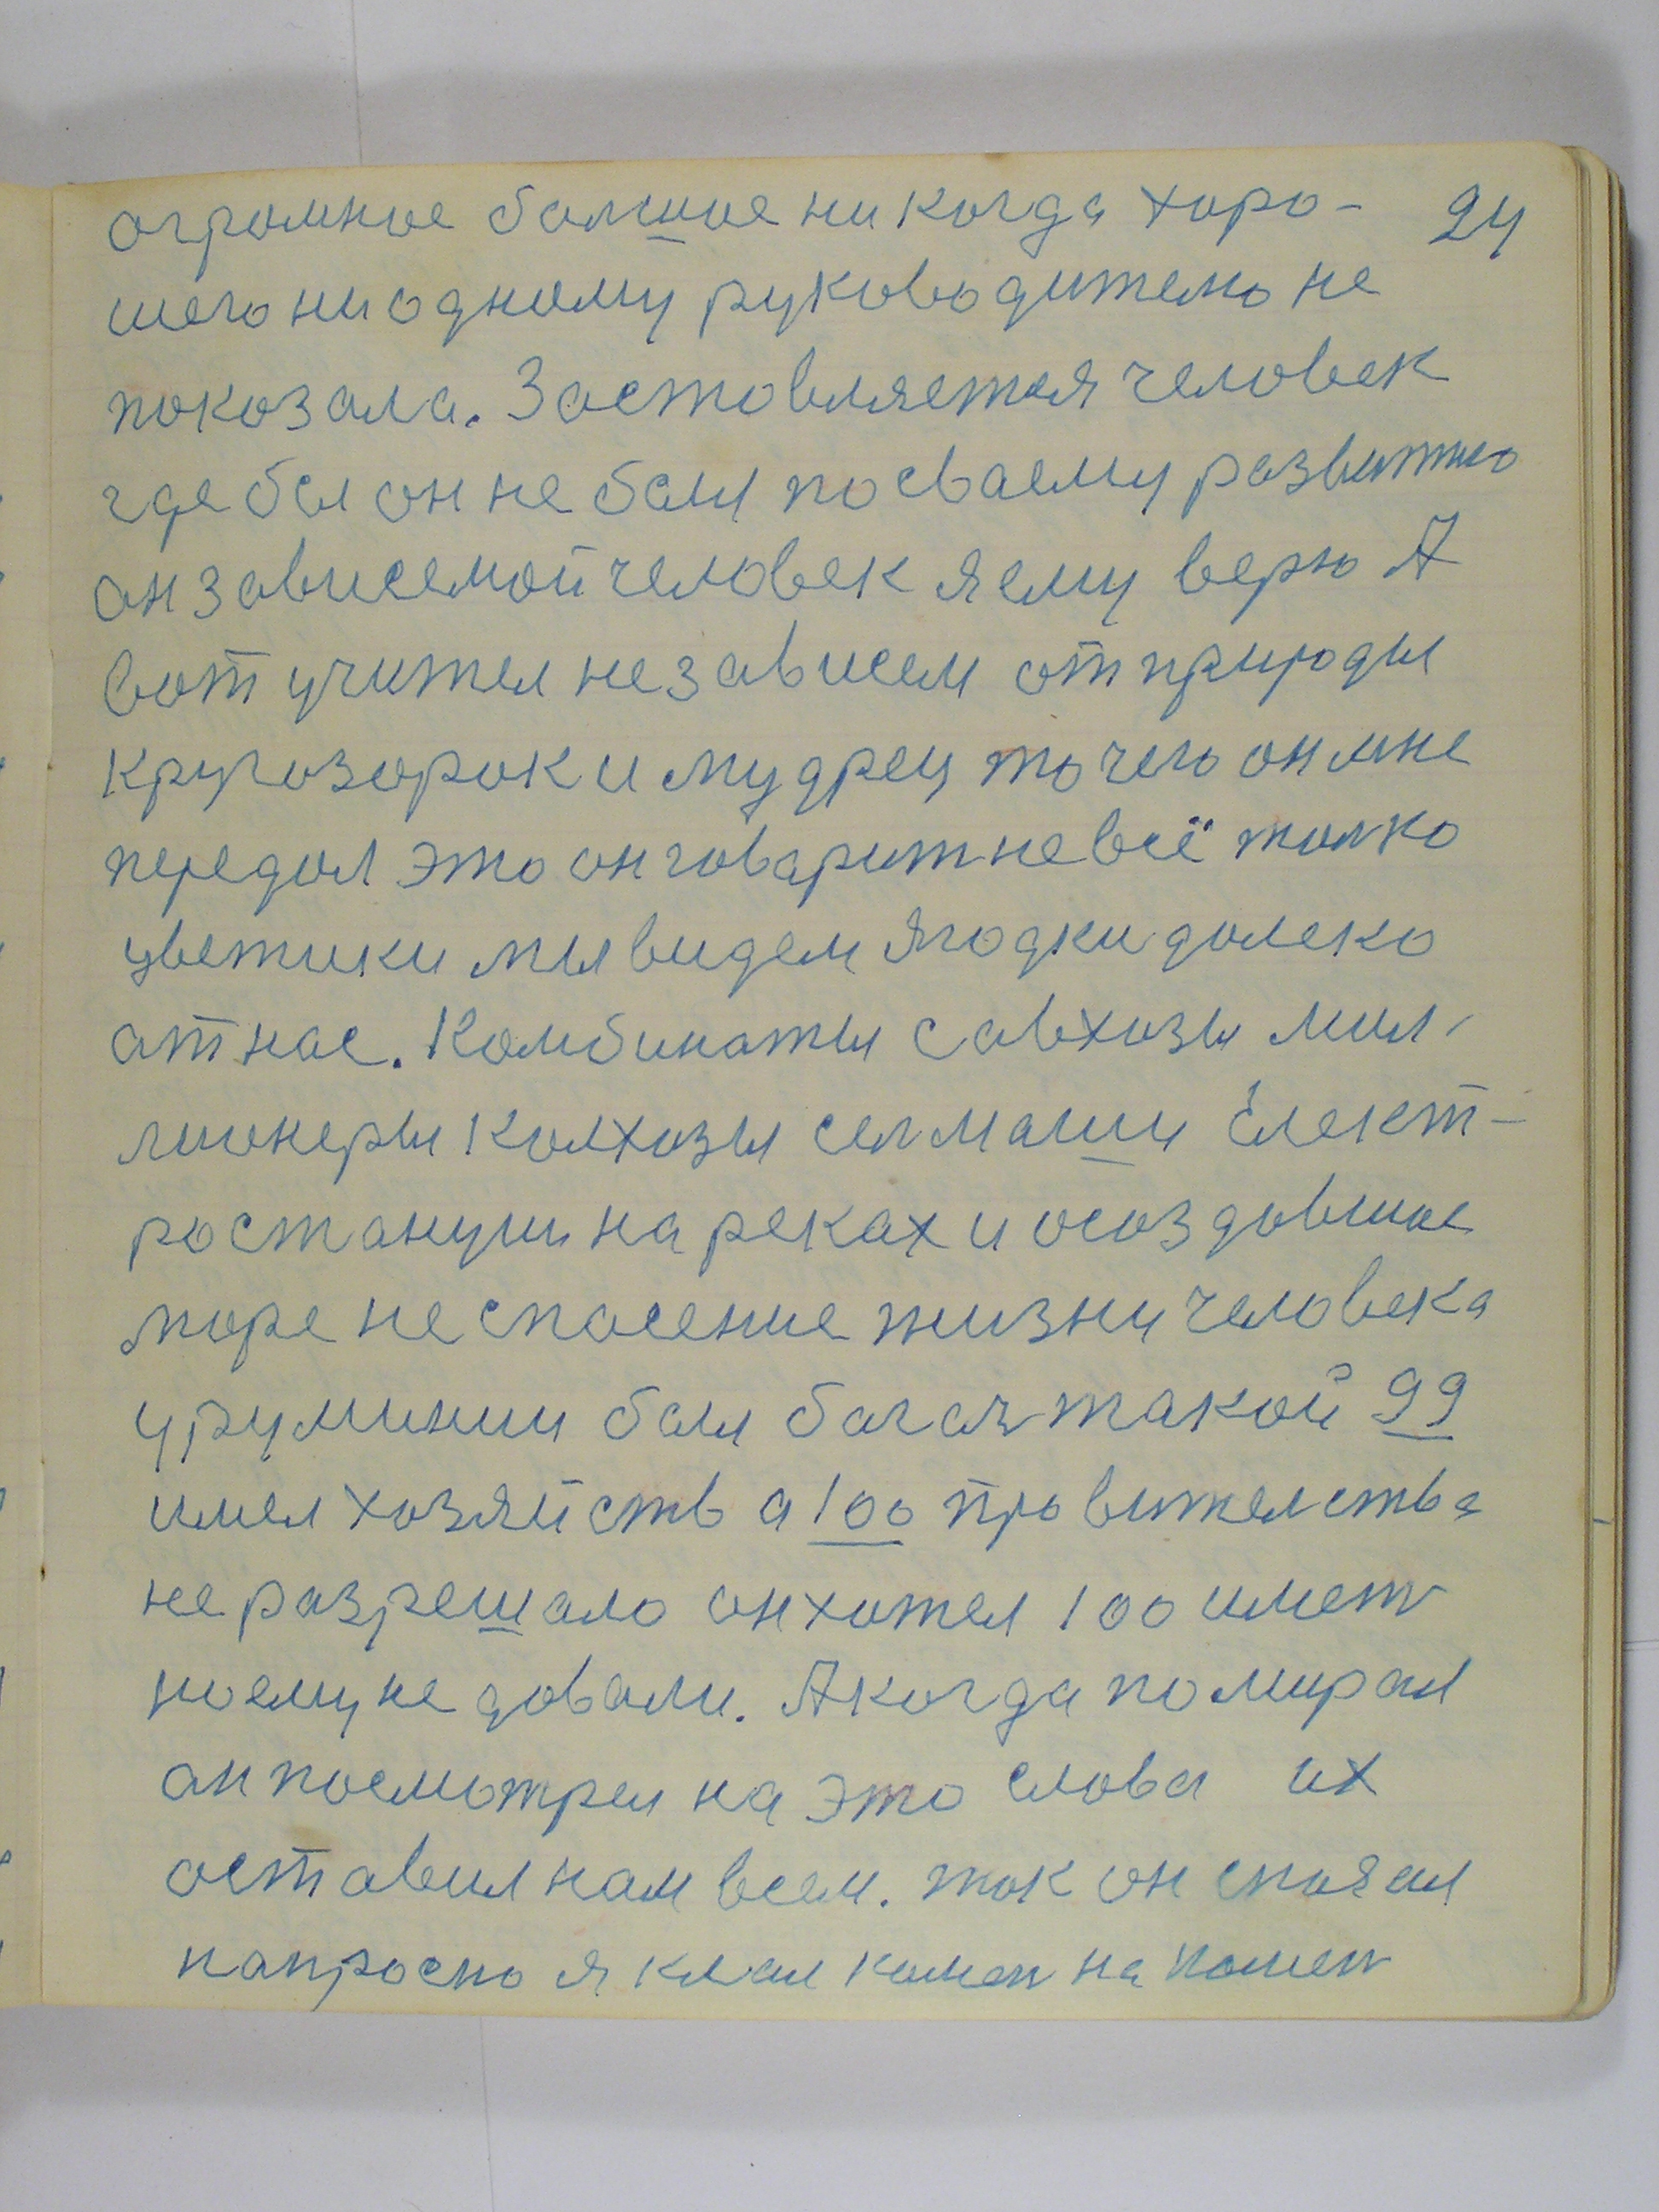 огромное болшое никогда хоро- 24
шего ниодному руководителю не
покозала. Заставляется человек
где бы он не был по сваему развитию
он зависемой человек я ему верю А
вот учител независем от природы
кругозорок и мудрец то чего он мне
передол это он говарит не всё толко
цветики мы видем ягодки долеко
от нас. Комбинаты савхозы мил-
лионеры колхозы селмаши Елект-
ростанции на реках и осоздовшое
море не спасение жизни человека
у румынии был багач такой 99
имел хозяйств а 100 провителства
не разрешало он хотел 100 имет
но ему не довали. А когда помирал
он посмотрел на это слова их
оставил нам всем. так он сказал
напросно я клал камен на камен